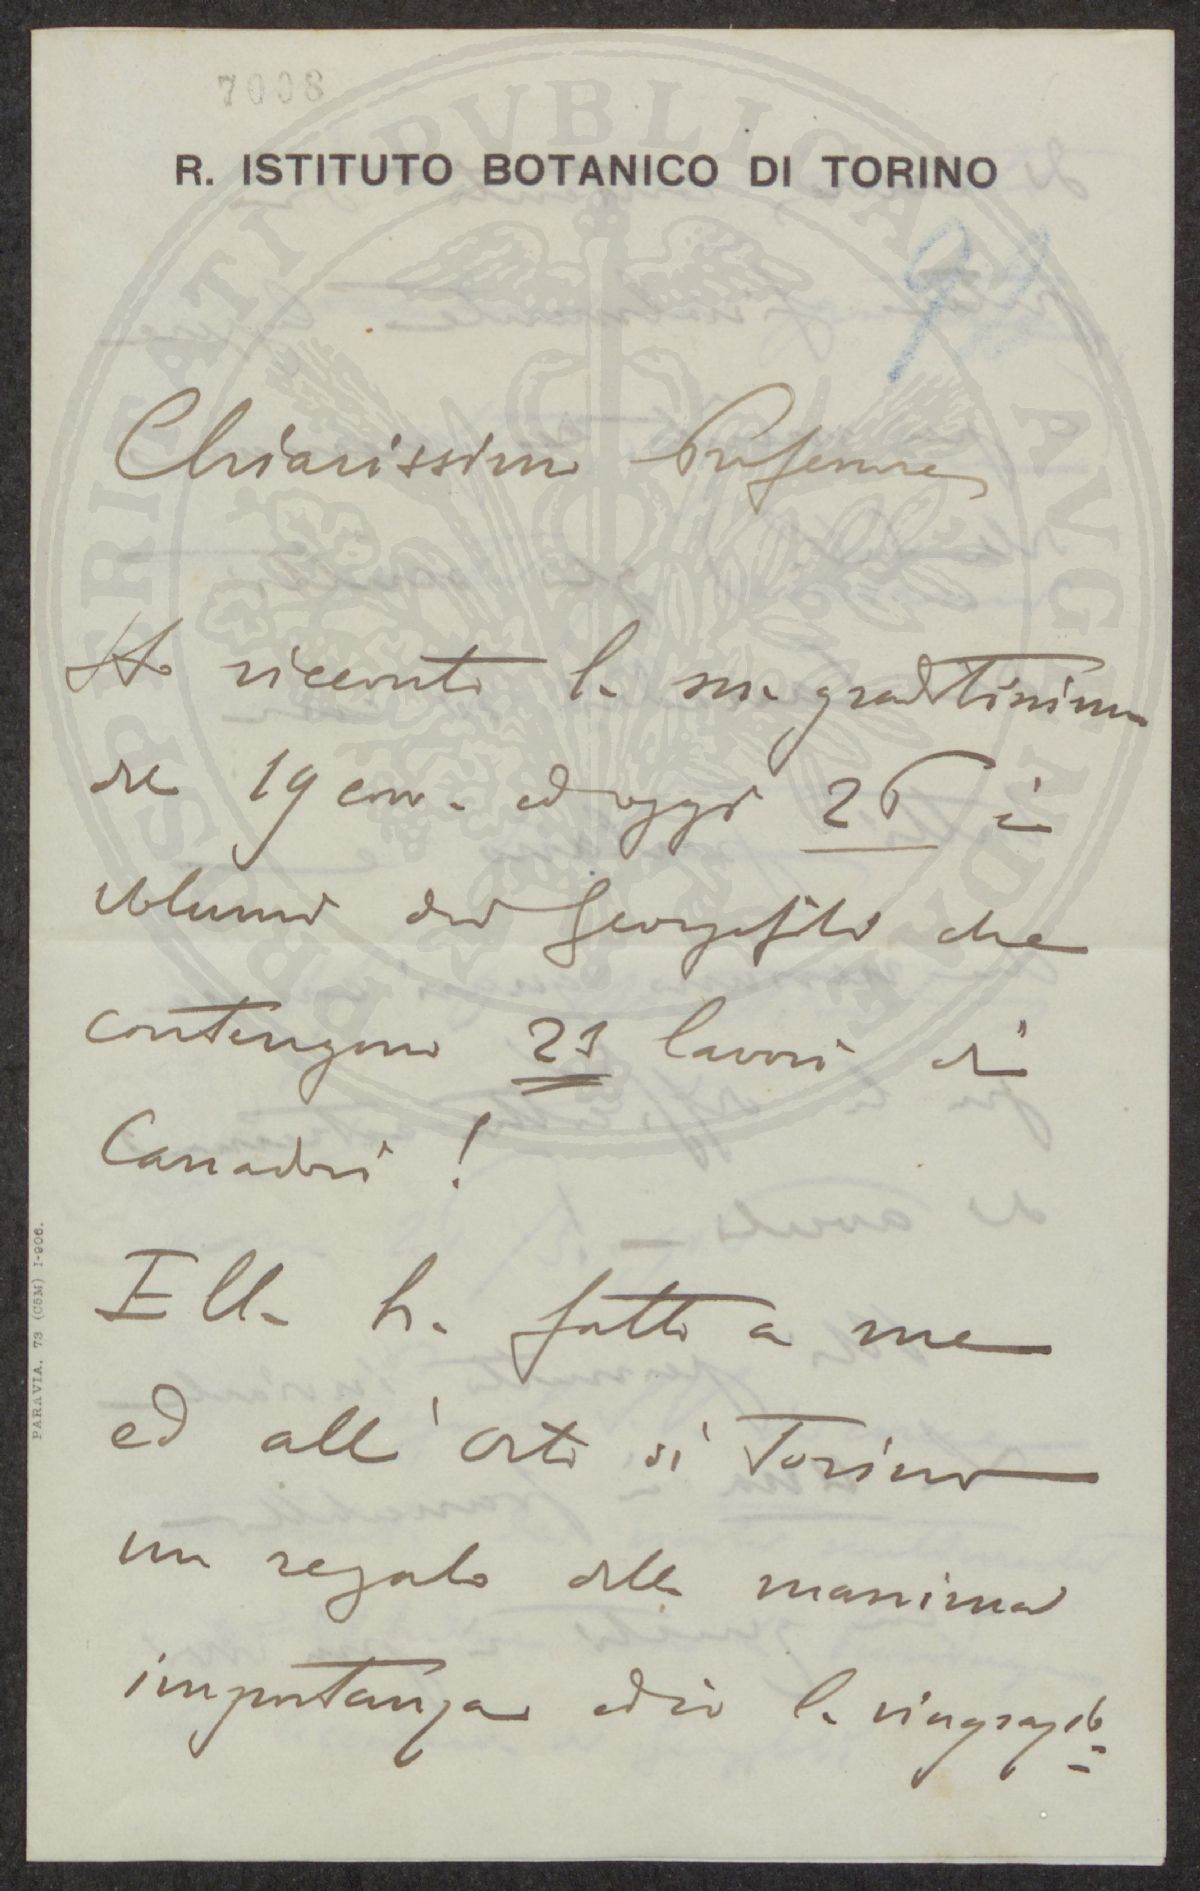 7008
R. ISTITUTO BOTANICO DI TORINO
Chiarissimo Professore
Ho ricevuto la sua graditissima
del 19 corr. ed oggi 26 i
volumi dei Georgofili che
contengono 21 lavori di
Carradori!
Ella ha fatto a me
ed all'Orto di Torino
un regalo della massima
importanza ed io la ringrazio
PARAVIA. 73 (C5M) 1-906.
PROSPERITATI PVBLICAE AVGENDAE